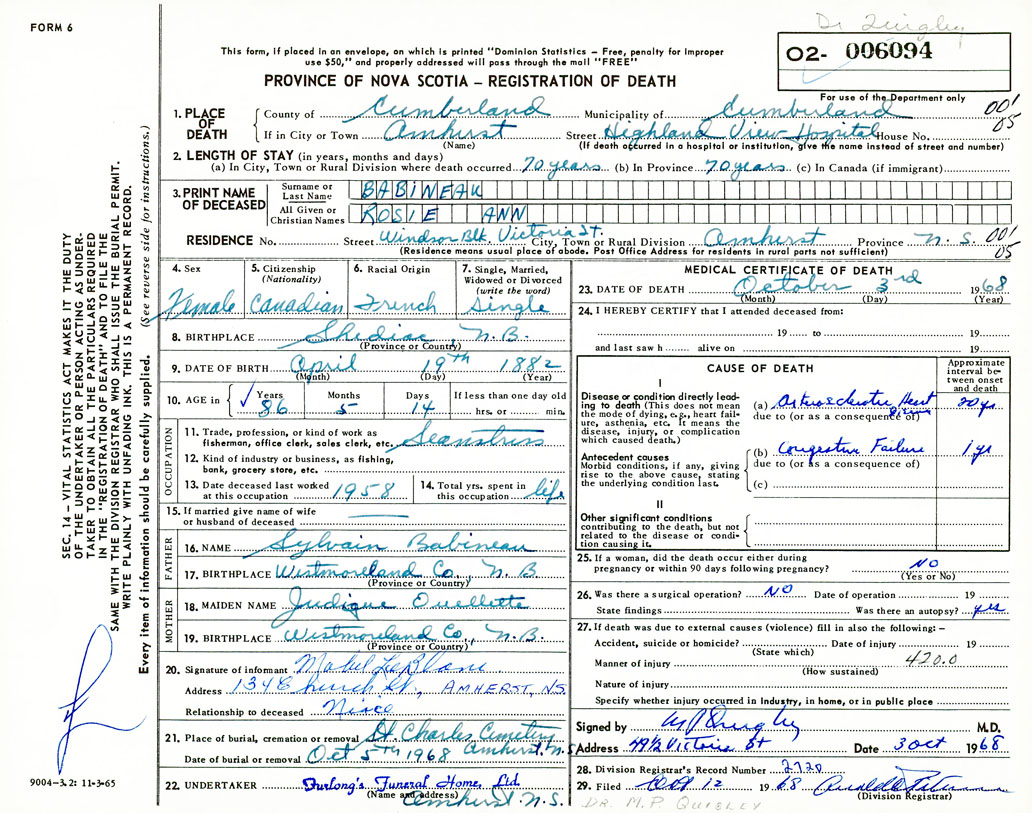 FORM 6
Dr Quigley
This form, if placed in an envelope, on which is printed "Dominion Statistics – Free, penalty for improper
use $50," and properly addressed will pass through the mail "FREE"
02- 006094
PROVINCE OF NOVA SCOTIA – REGISTRATION OF DEATH
For use of the Department only
001
05
1. PLACE OF DEATH
County of Cumberland Municipality of Cumberland
If in City or Town Amhurst Street Highland View Hospital House No.
(Name) (If death occurred in a hospital or institution, give the name instead of street and number)
2. LENGTH OF STAY (in years, months and days)
(a) In City, Town or Rural Division where death occurred 70 years (b) In Province 70 years (c) In Canada (if immigrant)
3. PRINT NAME OF DECEASED
Surname or Last Name BABINEAU
All Given or Christian Names ROSIE ANN
RESIDENCE No. Street Windsor Blk. Victoria St. City, Town or Rural Division Amhurst Province N. S. 001
05
(Residence means usual place of abode. Post Office Address for residents in rural parts not sufficient)
4. Sex 5. Citizenship (Nationality) 6. Racial Origin 7. Single, Married, Widowed or Divorced (write the word)
Female Canadian French Single
8. BIRTHPLACE Shediac, N.B.
(Province or Country)
9. DATE OF BIRTH April 19th 1882
(Month) (Day) (Year)
10. AGE in Years Months Days If less than one day old
86 5 14 hrs. or min.
OCCUPATION
11. Trade, profession, or kind of work as
fisherman, office clerk, sales clerk, etc. Seamstress
12. Kind of industry or business, as fishing,
bank, grocery store, etc.
13. Date deceased last worked at this occupation 1958 14. Total yrs. spent in this occupation life
15. If married give name of wife
or husband of deceased
FATHER
16. NAME Sylvain Babineau
17. BIRTHPLACE Westmoreland Co., N. B.
(Province or Country)
MOTHER
18. MAIDEN NAME Judique Ouellette
19. BIRTHPLACE Westmoreland Co., N.B.
(Province or Country)
20. Signature of informant Mabel LeBlanc
Address 134 Church St., AMHERST, N.S.
Relationship to deceased Niece
21. Place of burial, cremation or removal St. Charles Cemetry
Amhurst, N.S
Date of burial or removal Oct 5th 1968
22. UNDERTAKER Furlong's Funeral Home, Ltd.
(Name and address)
Amhurst N.S.
MEDICAL CERTIFICATE OF DEATH
23. DATE OF DEATH October 3rd 1968
(Month) (Day) (Year)
24. I HEREBY CERTIFY that I attended deceased from:
19 to 19
and last saw h alive on 19
CAUSE OF DEATH
Approximate interval between onset and death
I
Disease or condition directly leading to death (This does not mean the mode of dying, e.g., heart failure, asthenia, etc. It means the disease, injury, or complication which caused death.)
(a) Arteriosclerotic Heart 20 yr
due to (or as a consequence of)
Antecedent causes
Morbid conditions, if any, giving rise to the above cause, stating the underlying condition last.
(b) Congestive Failure 1 yr
due to (or as a consequence of)
(c)
II
Other significant conditions
contributing to the death, but not related to the disease or condition causing it.
25. If a woman, did the death occur either during
pregnancy or within 90 days following pregnancy? NO
(Yes or No)
26. Was there a surgical operation? NO Date of operation 19
State findings Was there an autopsy? yes
27. If death was due to external causes (violence) fill in also the following: –
Accident, suicide or homicide? Date of injury 19
(State which)
Manner of injury 420.0
(How sustained)
Nature of injury
Specify whether injury occurred in Industry, in home, or in public place
Signed by M P Quigley M.D.
Address 49 1/2 Victoria St Date 3 Oct 1968
28. Division Registrar's Record Number 2720
29. Filed Oct 12 1968
(Division Registrar)
DR. M.P. QUIGLEY
SEC. 14 – VITAL STATISTICS ACT MAKES IT THE DUTY
OF THE UNDERTAKER OR PERSON ACTING AS UNDER-
TAKER TO OBTAIN ALL THE PARTICULARS REQUIRED
IN THE "REGISTRATION OF DEATH" AND TO FILE THE
SAME WITH THE DIVISION REGISTRAR WHO SHALL ISSUE THE BURIAL PERMIT.
WRITE PLAINLY WITH UNFADING INK. THIS IS A PERMANENT RECORD.
Every item of information should be carefully supplied. (See reverse side for instructions.)
9004-3.2: 11-3-65